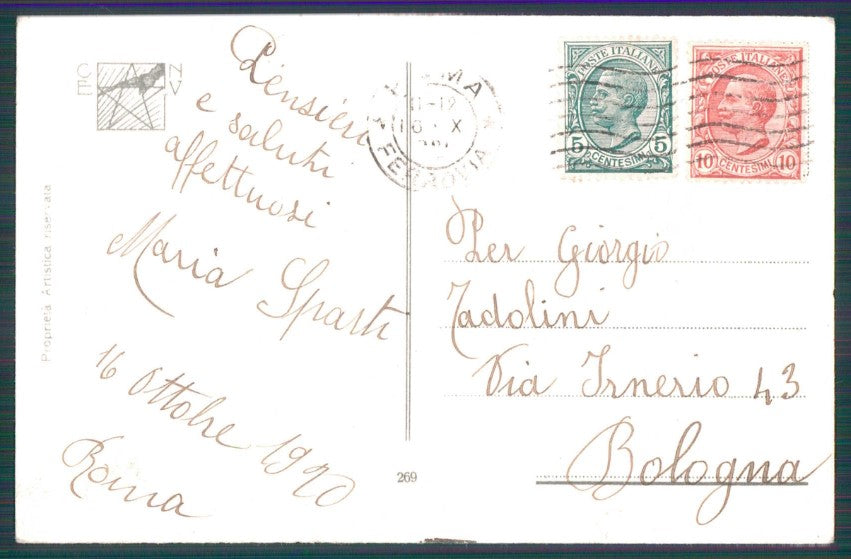 Pensieri
e saluti
affettuosi
Maria Sparti
16 Ottobre 1920
Roma
Proprietà Artistica riservata
269
ROMA
11-12
X
FERROVIA
POSTE ITALIANE
5 CENTESIMI 5
POSTE ITALIANE
10 CENTESIMI 10
Per Giorgio
Tadolini
Via Irnerio 43
Bologna